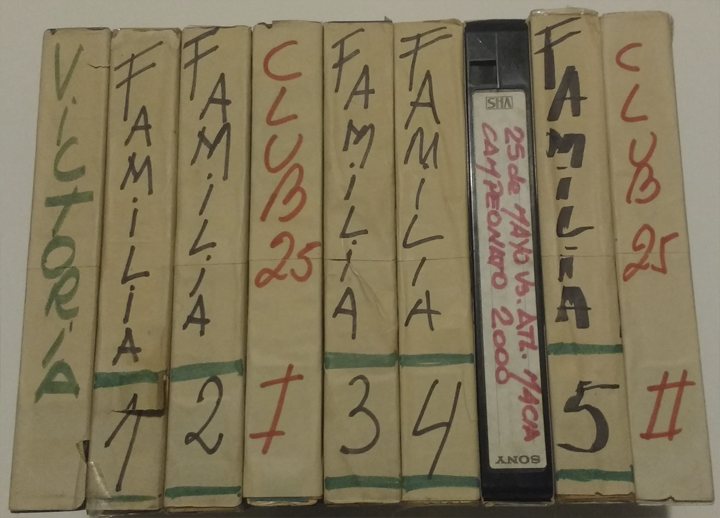 VICTORIA
FAMILIA
1
FAMILIA
2
CLUB 25
I
FAMILIA
3
FAMILIA
4
VHS
25 de MAYO Vs. ATL. MACIA
CAMPEONATO 2000
SONY
FAMILIA
5
CLUB 25
II